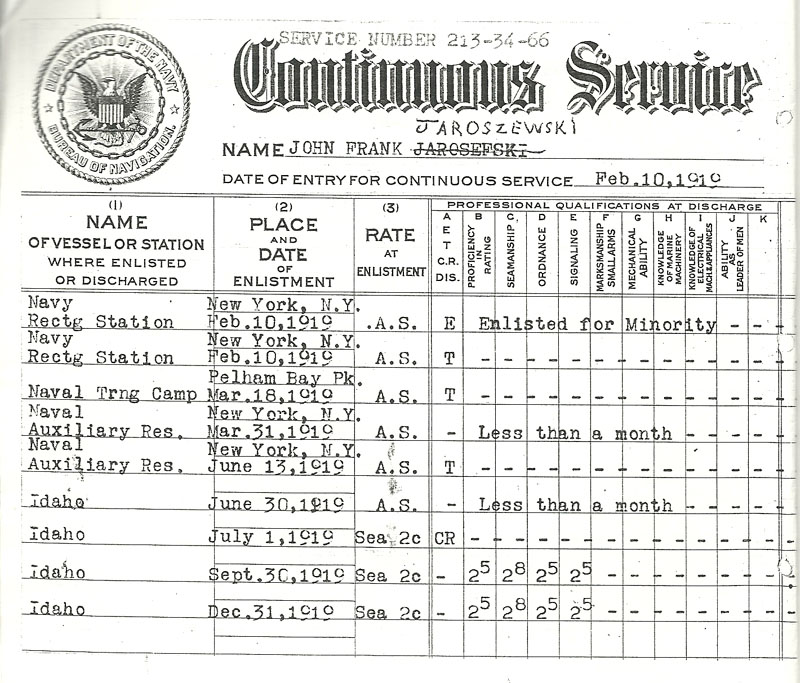 SERVICE NUMBER 213-34-66
Continuous Service
DEPARTMENT OF THE NAVY
BUREAU OF NAVIGATION.
JAROSZEWSKI
NAME JOHN FRANK JAROSEFSKI
DATE OF ENTRY FOR CONTINUOUS SERVICE Feb.10,1919
(1) NAME OF VESSEL OR STATION WHERE ENLISTED OR DISCHARGED
(2) PLACE AND DATE OF ENLISTMENT
(3) RATE AT ENLISTMENT
PROFESSIONAL QUALIFICATIONS AT DISCHARGE
A E T C.R. DIS.
B PROFICIENCY IN RATING
C, SEAMANSHIP
D ORDNANCE
E SIGNALING
F MARKSMANSHIP SMALL ARMS
G MECHANICAL ABILITY
H KNOWLEDGE OF MARINE MACHINERY
I KNOWLEDGE OF ELECTRICAL MACH. & APPLIANCES
J ABILITY AS LEADER OF MEN
K
Navy New York, N.Y.
Rectg Station Feb.10,1919 .A.S. E Enlisted for Minority - - -
Navy New York, N.Y.
Rectg Station Feb.10,1919 A.S. T - - - - - - - - - -
Pelham Bay Pk.
Naval Trng Camp Mar.18,1919 A.S. T - - - - - - - - - -
Naval New York, N.Y.
Auxiliary Res. Mar.31,1919 A.S. - Less than a month - - - -
Naval New York, N.Y.
Auxiliary Res. June 13,1919 A.S. T - - - - - - - - - -
Idaho June 30,1919 A.S. - Less than a month - - - -
Idaho July 1,1919 Sea 2c CR - - - - - - - - - -
Idaho Sept.30,1919 Sea 2c - 2⁵ 2⁸ 2⁵ 2⁵ - - - - - -
Idaho Dec.31,1919 Sea 2c - 2⁵ 2⁸ 2⁵ 2⁵ - - - - - -